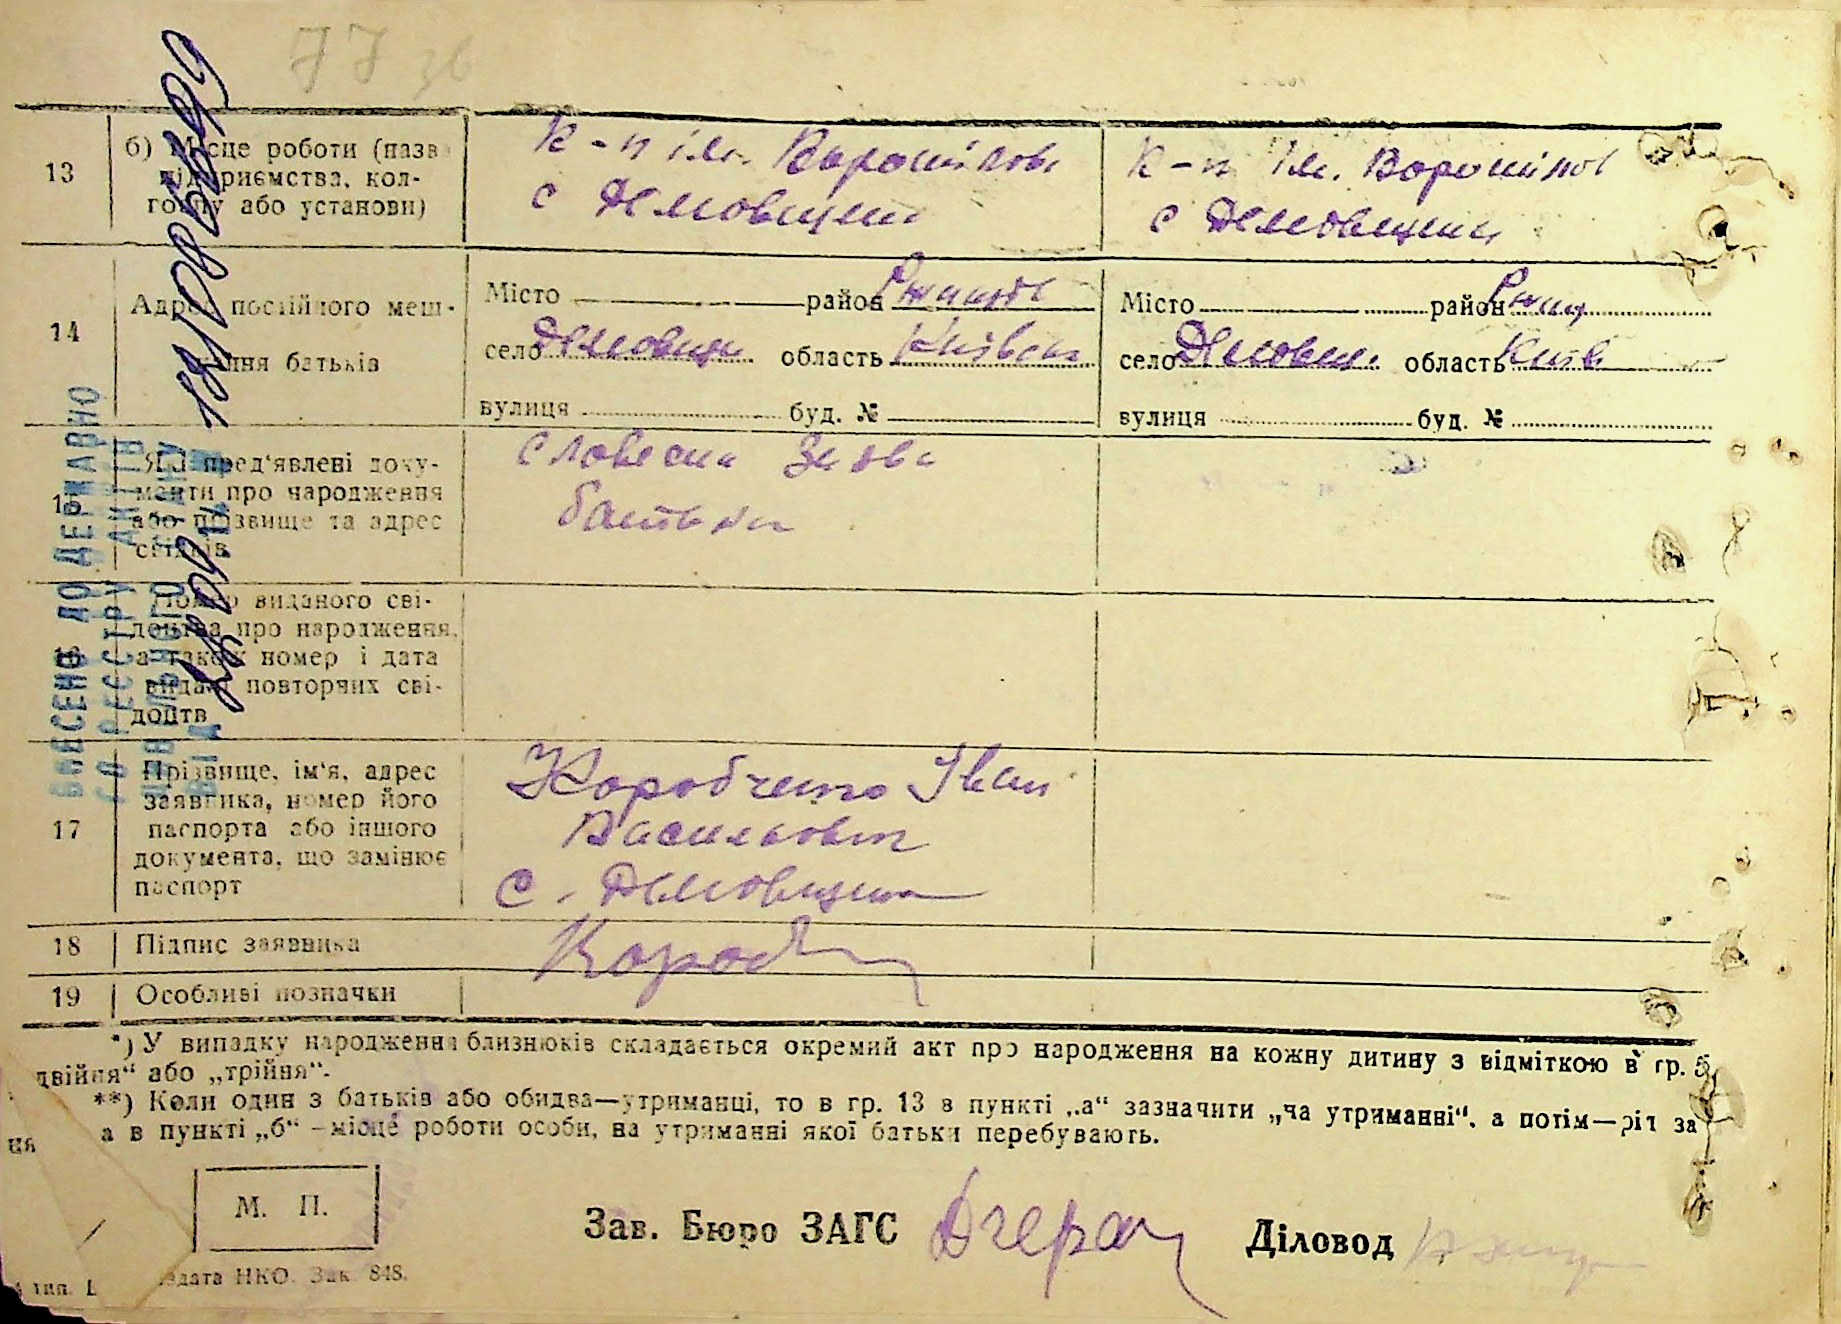 77 зв
13
б) Місце роботи (назва
підприємства, кол-
госпу або установи)
к-п ім. Ворошилова
с Демовщина
к-п ім. Ворошилов
с Демовщина
14
Адрес постійного меш-
кання батьків
Місто район
село Демовщи область Київськ
вулиця буд. №
Місто район Ржищ
село Демовщ. область Київ
вулиця буд. №
15
Які пред'явлені доку-
менти про народження
або прізвище та адрес
свідків
Словесна Заява
батька
Номер виданого сві-
доцтва про народження,
а також номер і дата
видачі повторних сві-
доцтв
17
Прізвище, ім'я, адрес
заявника, номер його
паспорта або іншого
документа, що замінює
паспорт
Коробченко Іван
Васильович
с. Демовщина
18
Підпис заявника
Короб
19
Особливі позначки
*) У випадку народження близнюків складається окремий акт про народження на кожну дитину з відміткою в гр. 5
двійня“ або „трійня“.
**) Коли один з батьків або обидва—утриманці, то в гр. 13 в пункті „а“ зазначити „на утриманні“, а потім—рід за
а в пункті „б“ —місце роботи особи, на утриманні якої батьки перебувають.
М. П.
Зав. Бюро ЗАГС
Діловод
тип. НКО. Зак. 848.
ВНЕСЕНО ДО ДЕРЖАВНО
ГО РЕЄСТРУ АКТІВ
ЦИВІЛЬНОГО СТАНУ
ВІД